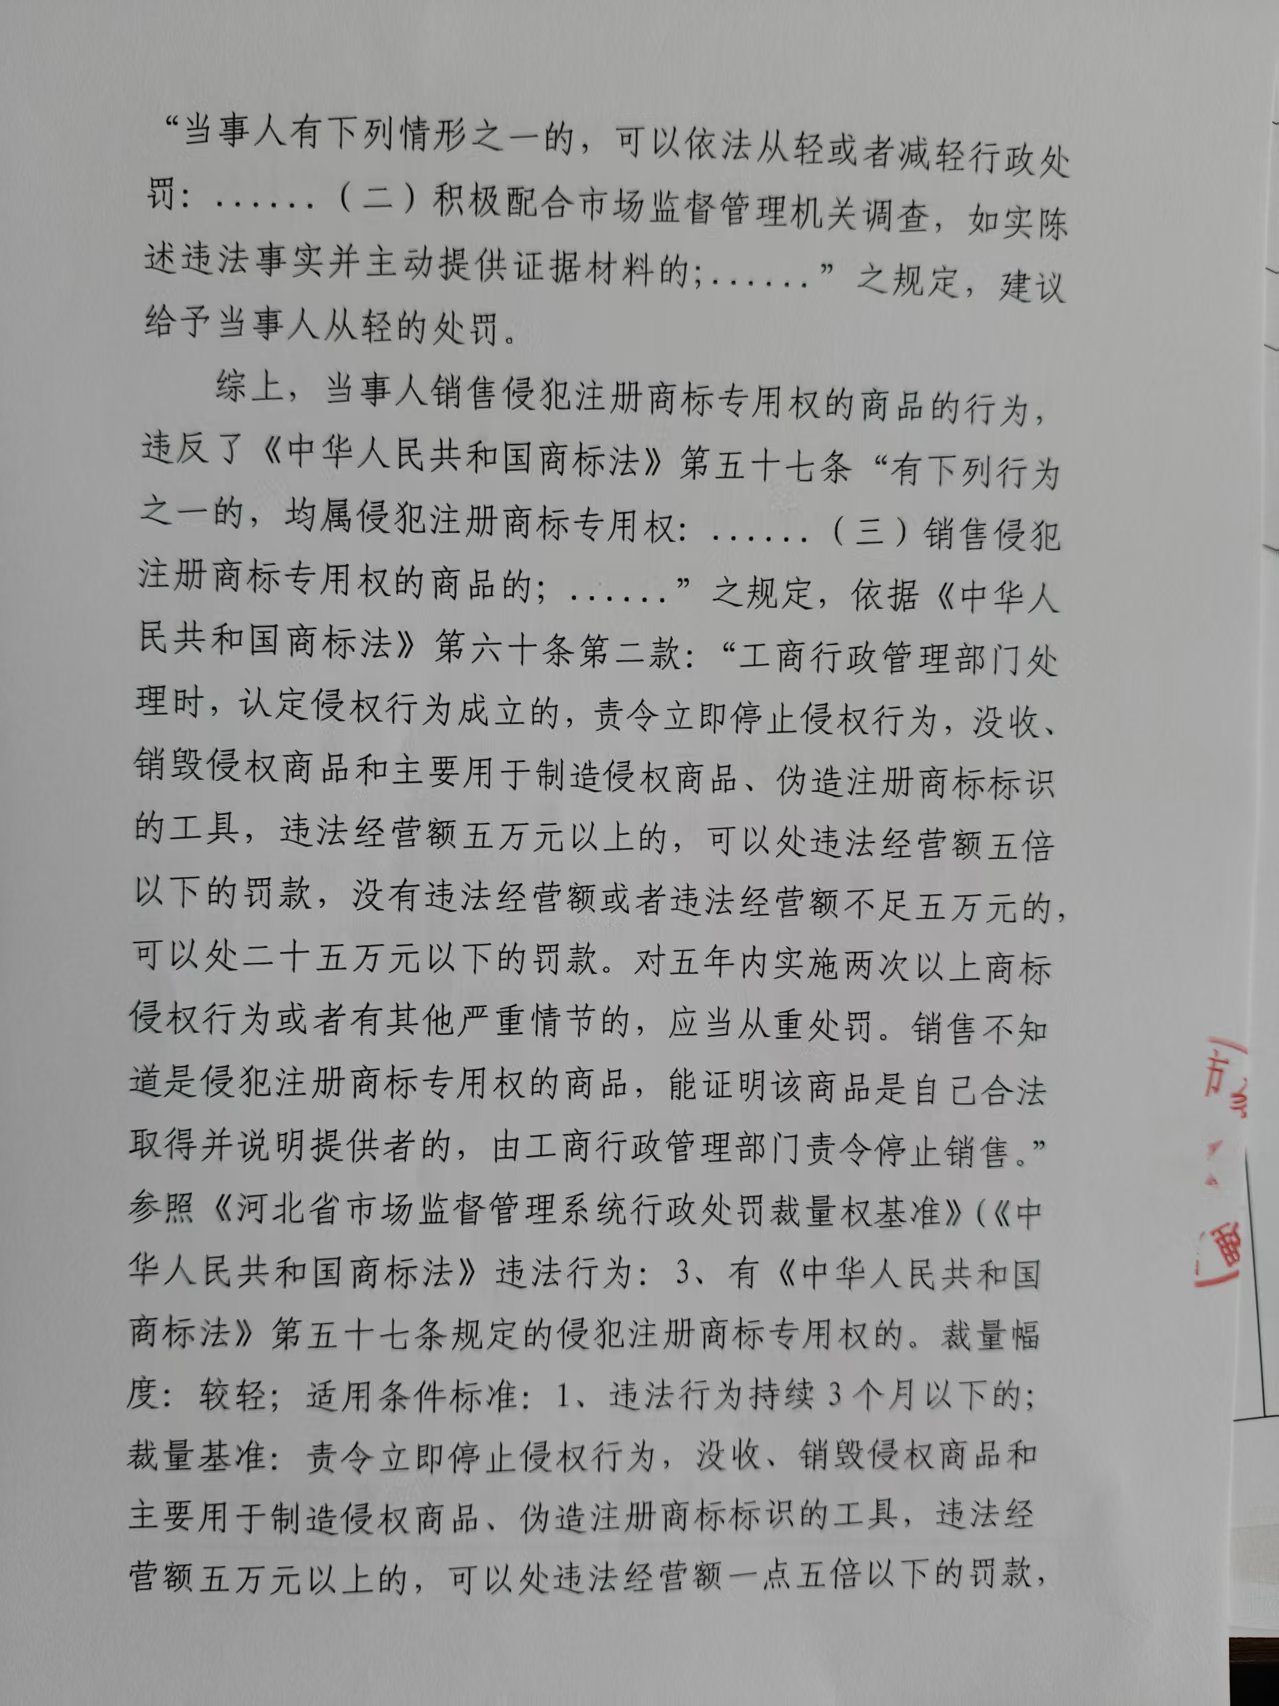 “当事人有下列情形之一的，可以依法从轻或者减轻行政处
罚：......（二）积极配合市场监督管理机关调查，如实陈
述违法事实并主动提供证据材料的；......”之规定，建议
给予当事人从轻的处罚。
综上，当事人销售侵犯注册商标专用权的商品的行为，
违反了《中华人民共和国商标法》第五十七条“有下列行为
之一的，均属侵犯注册商标专用权：......（三）销售侵犯
注册商标专用权的商品的；......”之规定，依据《中华人
民共和国商标法》第六十条第二款：“工商行政管理部门处
理时，认定侵权行为成立的，责令立即停止侵权行为，没收、
销毁侵权商品和主要用于制造侵权商品、伪造注册商标标识
的工具，违法经营额五万元以上的，可以处违法经营额五倍
以下的罚款，没有违法经营额或者违法经营额不足五万元的，
可以处二十五万元以下的罚款。对五年内实施两次以上商标
侵权行为或者有其他严重情节的，应当从重处罚。销售不知
道是侵犯注册商标专用权的商品，能证明该商品是自己合法
取得并说明提供者的，由工商行政管理部门责令停止销售。”
参照《河北省市场监督管理系统行政处罚裁量权基准》(《中
华人民共和国商标法》违法行为：3、有《中华人民共和国
商标法》第五十七条规定的侵犯注册商标专用权的。裁量幅
度：较轻；适用条件标准：1、违法行为持续3个月以下的；
裁量基准：责令立即停止侵权行为，没收、销毁侵权商品和
主要用于制造侵权商品、伪造注册商标标识的工具，违法经
营额五万元以上的，可以处违法经营额一点五倍以下的罚款，